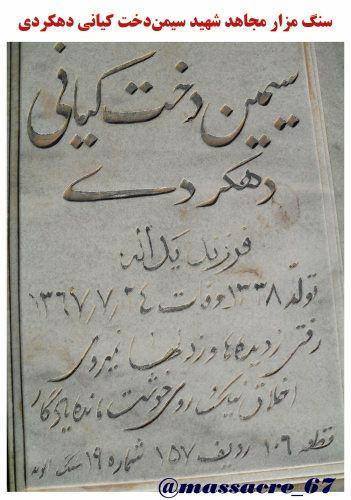 سنگ مزار مجاهد شهید سیمن‌دخت کیانی دهکردی
سیمین دخت کیانی
دهکردی
فرزند یداله
تولد ۱۳۳۸ وفات ۱۳۶۷/۷/۲۴
رفتی ز دیده‌ها و ز دلها نمیروی
اخلاق نیک روی خوشت مانده یادگار
قطعه ۱۰۶ ردیف ۱۵۷ شماره ۱۹ سنگ الوند
@massacre_67